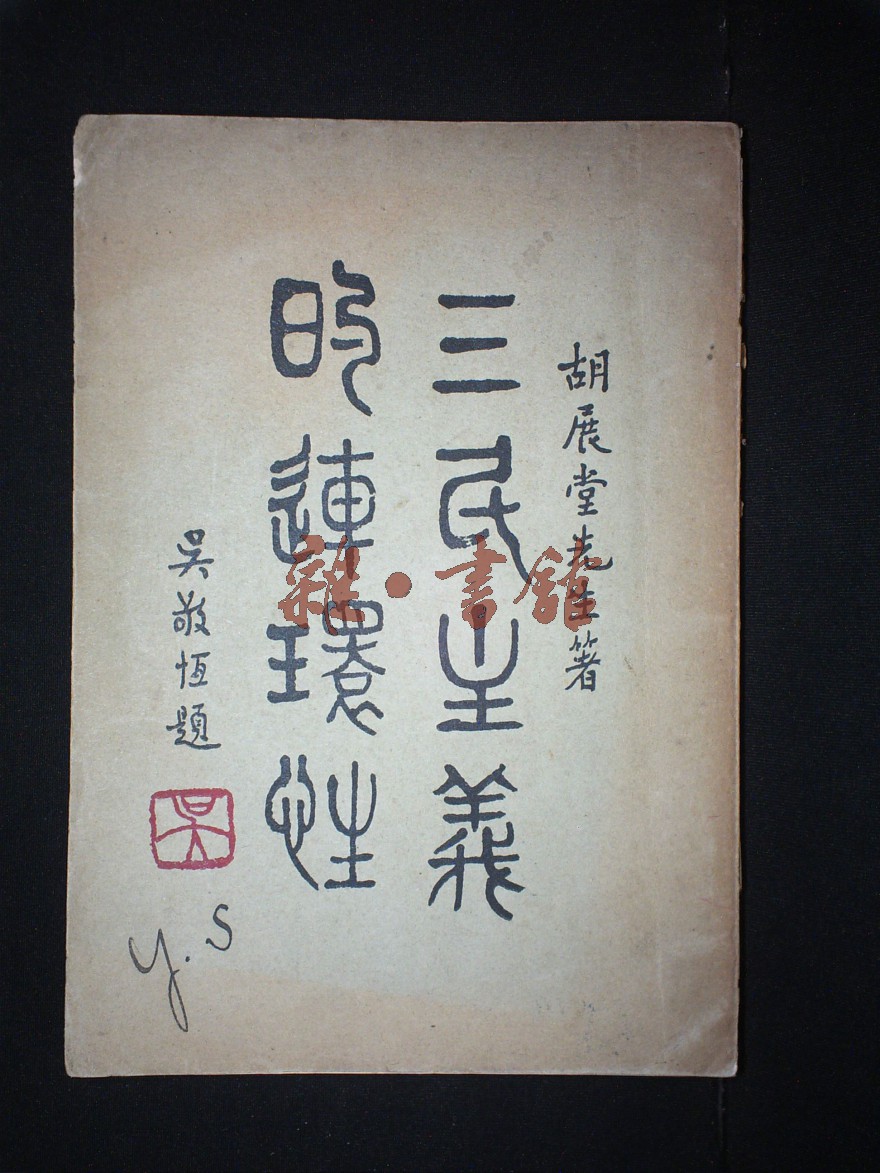 胡展堂先生箸
三民主義
的連環性
吳敬恆題
吳
y. S
雜·書館